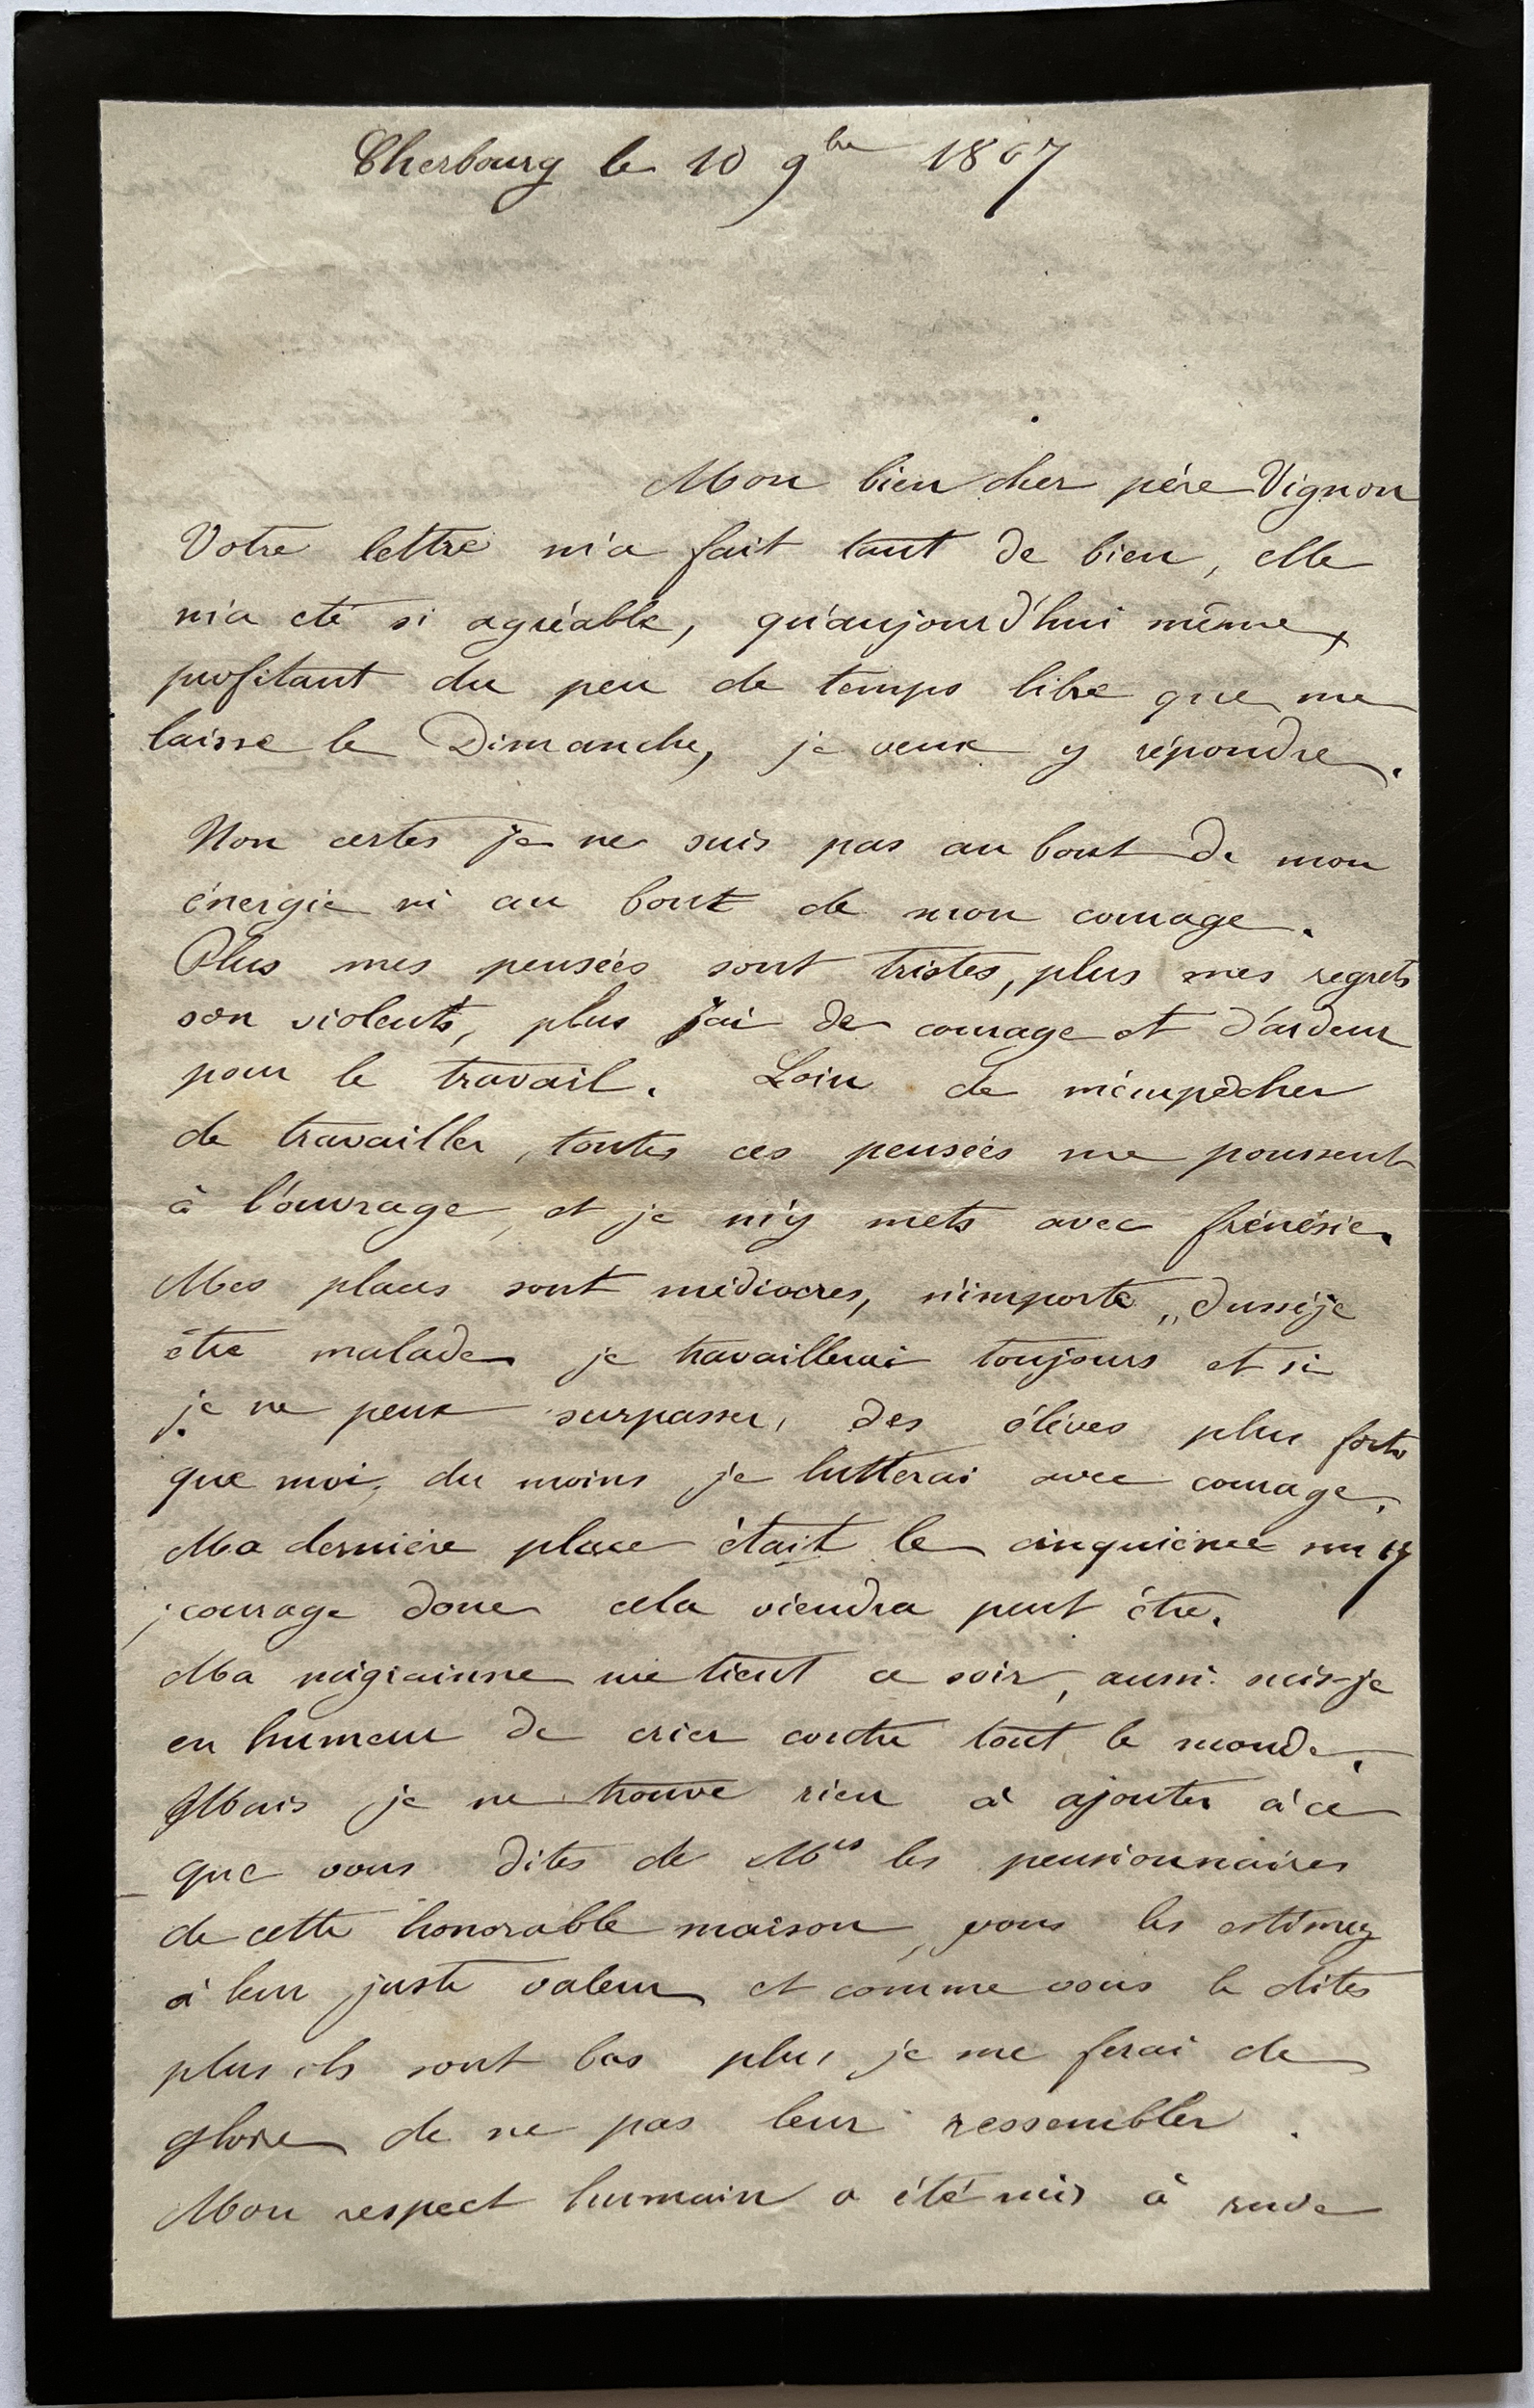 Cherbourg le 10 9bre 1867
Mon bien cher père Vignon
Votre lettre m'a fait tant de bien, elle
m'a eté si agréable, qu'aujourd'hui même,
profitant du peu de temps libre que me
laisse le Dimanche, je veux y répondre.
Non certes je ne suis pas au bout de mon
énergie ni au bout de mon courage.
Plus mes pensées sont tristes, plus mes regrets
son violents, plus j'ai de courage et d'ardeur
pour le travail. Loin de m'empêcher
de travailler, toutes ces pensées me poussent
à l'ouvrage, et je m'y mets avec frénésie.
Mes places sont médiocres, n'importe, dussèje
être malade je travaillerai toujours et si
je ne peux surpasser, des élèves plus forts
que moi, du moins je lutterai avec courage.
Ma dernière place était le cinquième sur 17
courage donc cela viendra peut être.
Ma migrainne me tient ce soir, aussi suis-je
en humeur de crier contre tout le monde.
Mais je ne trouve rien à ajouter à ce
que vous dites de Mrs les pensionnaires
de cette honorable maison, vous les estimez
à leur juste valeur et comme vous le dites
plus ils sont bas plus je me ferai de
gloire de ne pas leur ressembler.
Mon respect humain a été mis à rude